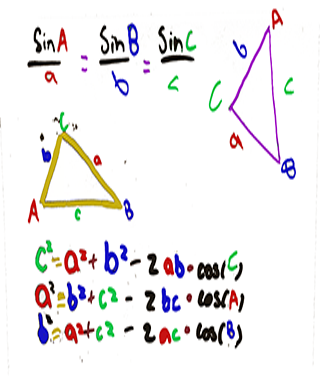 SinA/a = SinB/b = SinC/c
A
b
C
c
a
B
"C"
b
a
A
c
B
c²=a²+b²-2ab·cos(C)
a²=b²+c²-2bc·cos(A)
b²=a²+c²-2ac·cos(B)